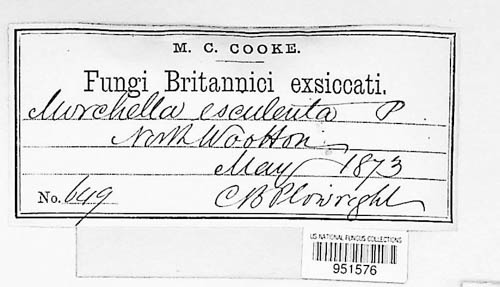 M. C. COOKE.
Fungi Britannici exsiccati.
Morchella esculenta P
North Wootton
May 1873
No. 649 C B Plowright
US NATIONAL FUNGUS COLLECTIONS
951576